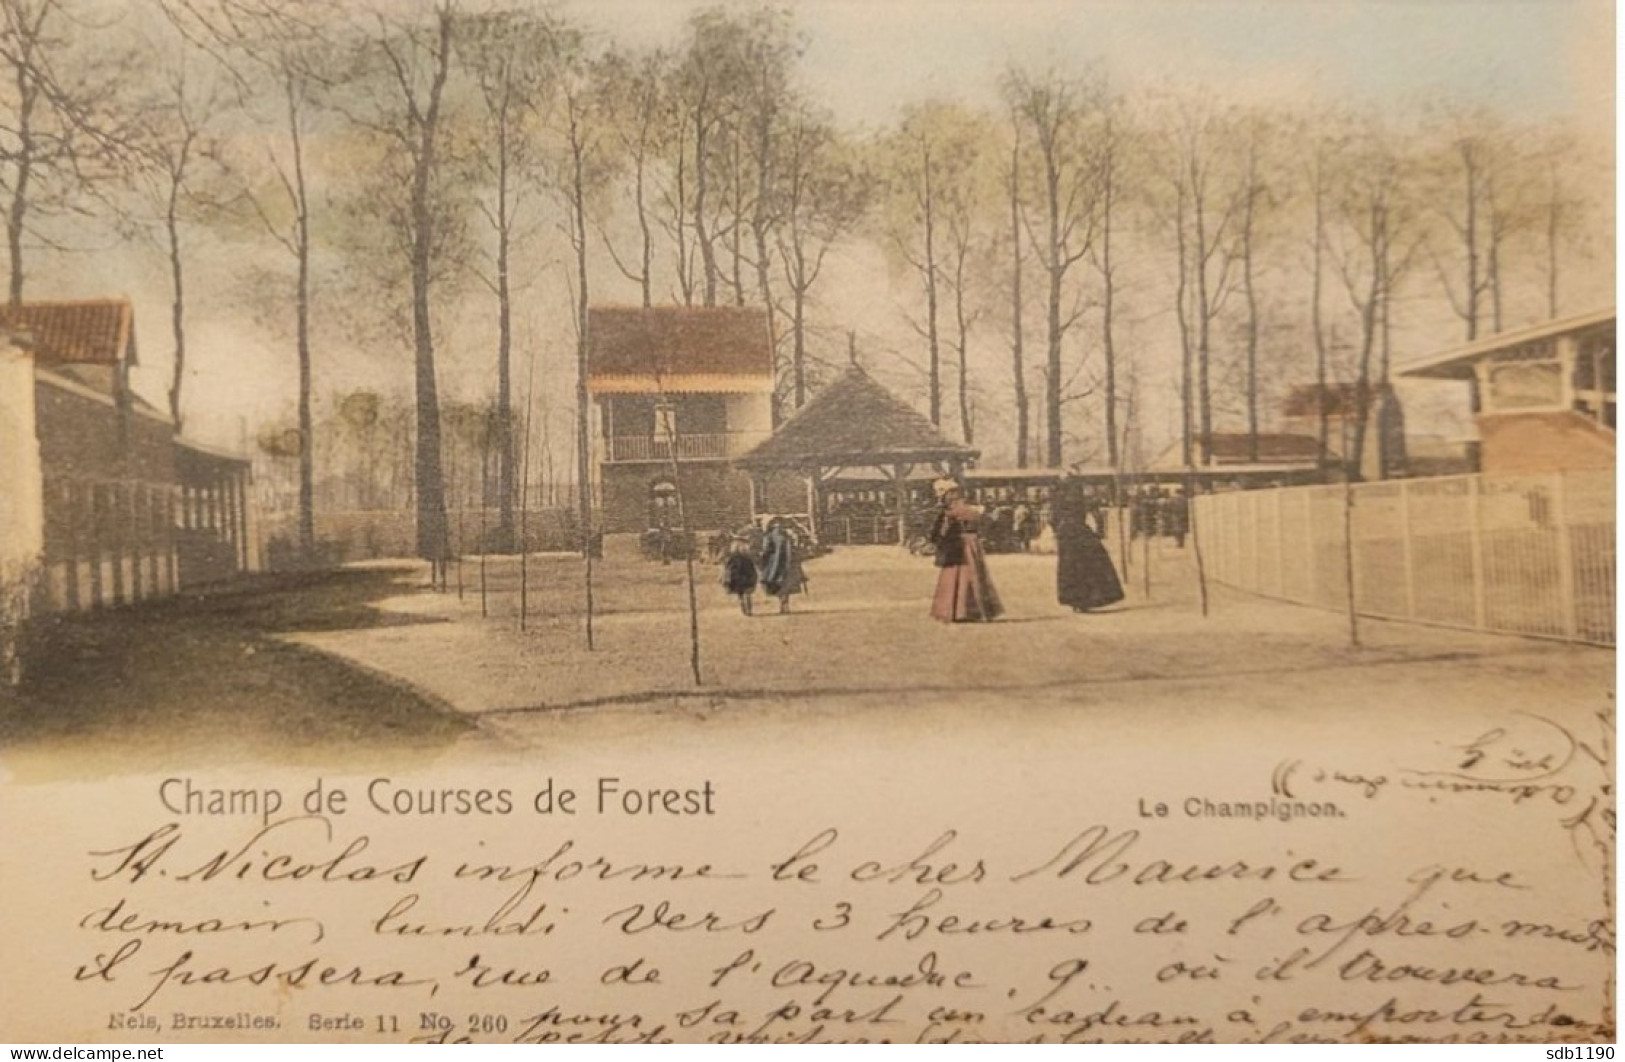 Champ de Courses de Forest
Le Champignon.
St. Nicolas informe le cher Maurice que
demain, lundi vers 3 heures de l'après-midi
il passera, rue de l'Aqueduc, 9.. où il trouvera
pour sa part un cadeau à emporter dans
sa petite voiture dans laquelle il
Nels, Bruxelles. Serie 11 No. 260
delcampe.net
sdb1190